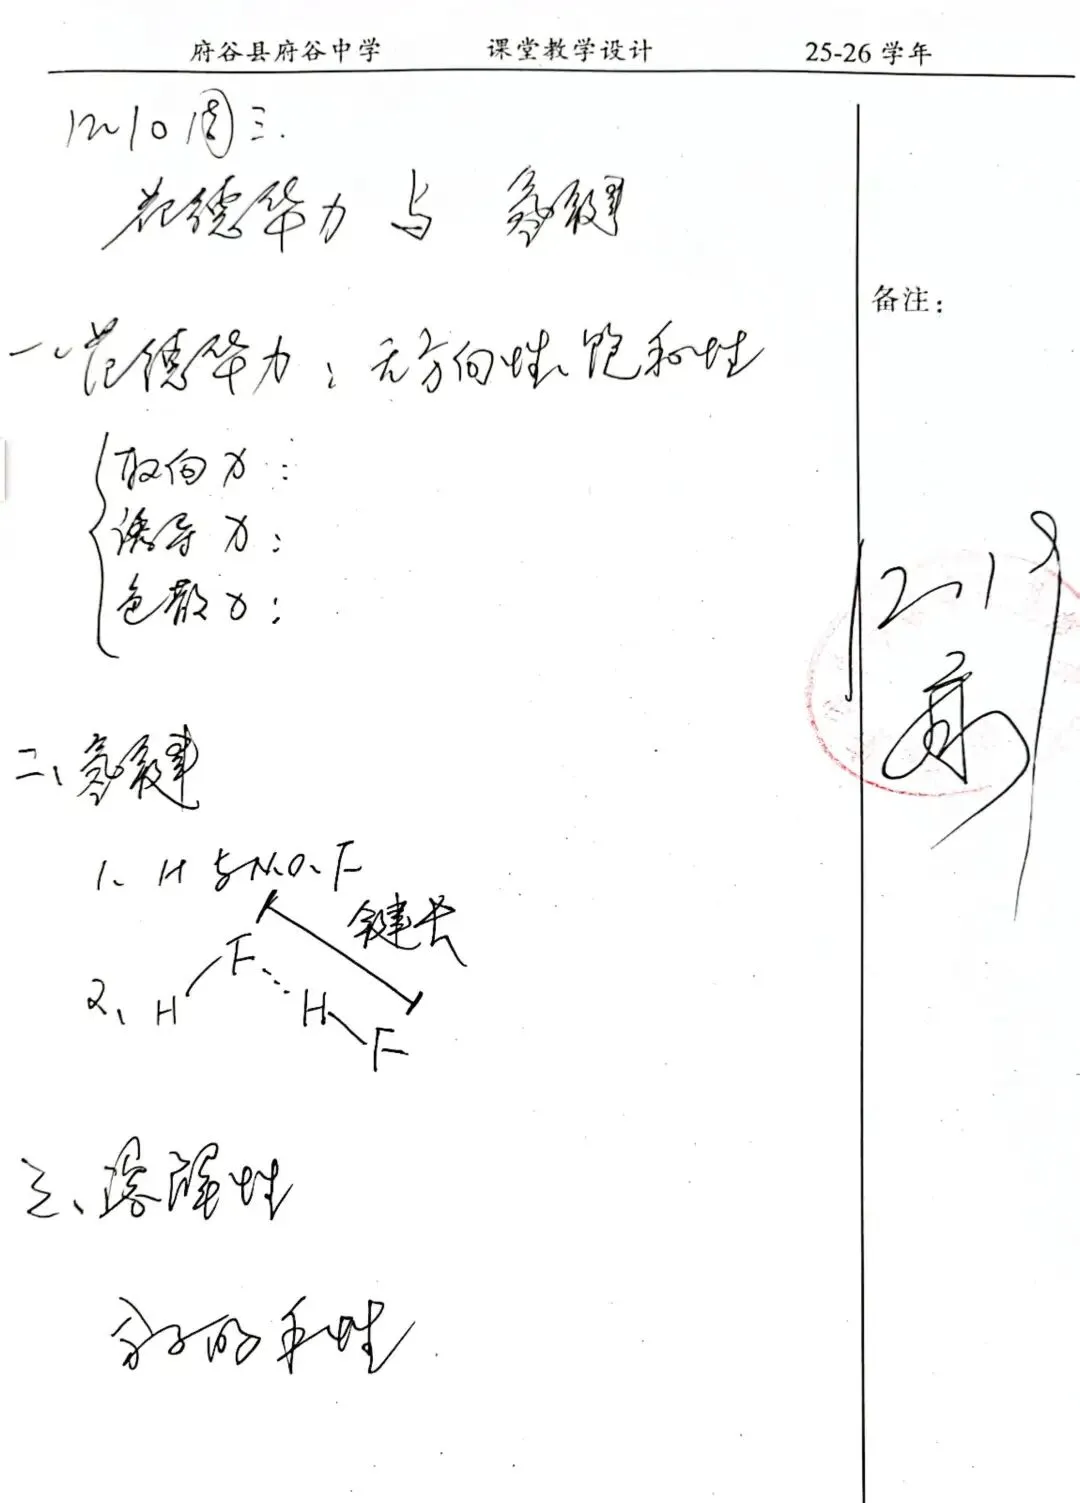 府谷县府谷中学 课堂教学设计 25-26 学年
12、10 周三.
范德华力 与 氢键
备注:
一、范德华力: 无方向性、饱和性
取向力:
诱导力:
色散力:
二、氢键
1、H 与N、O、F
键长
2、H F H F
三、溶解性
分子的手性
12-18